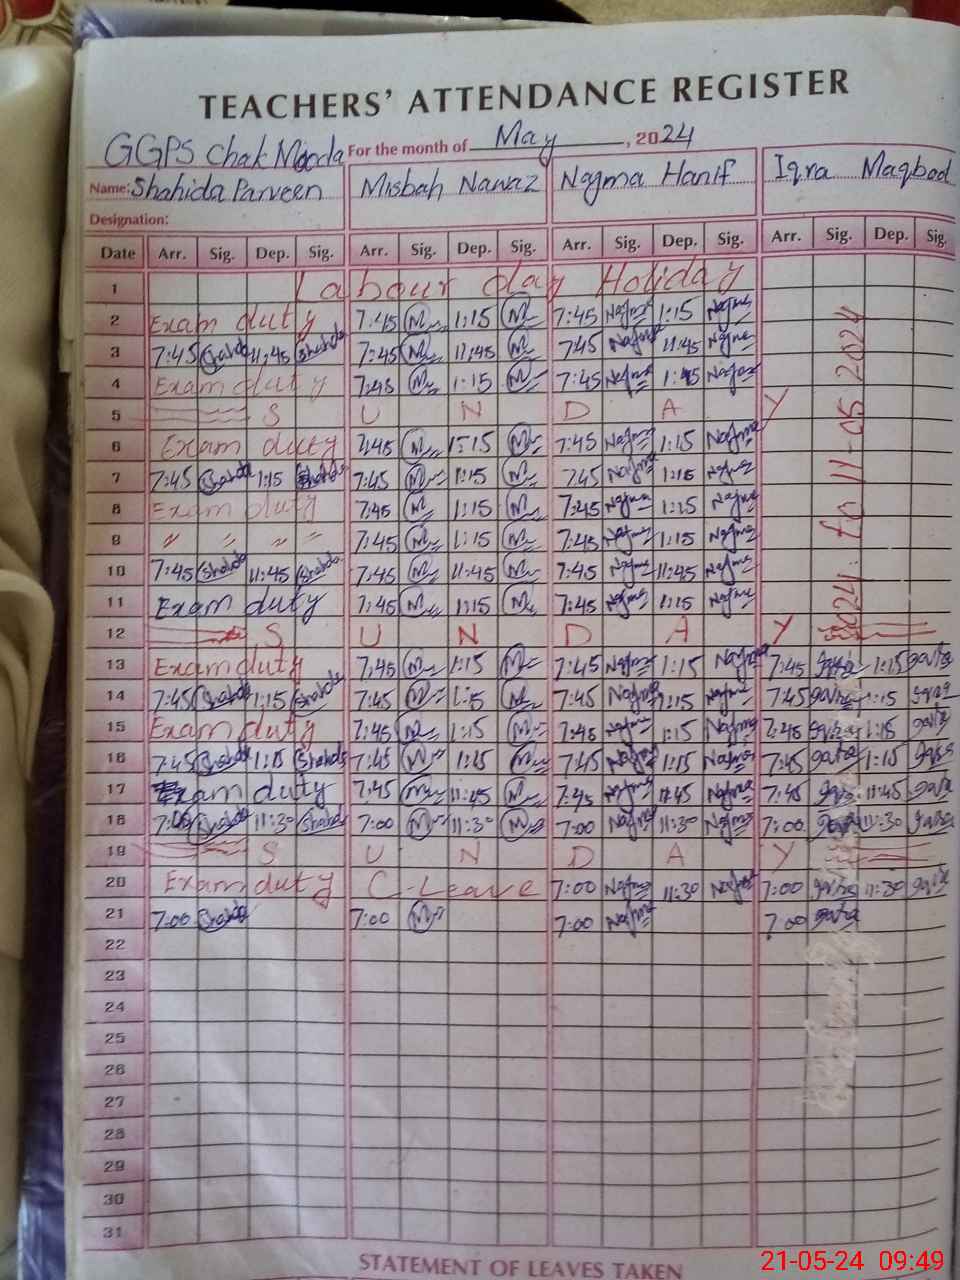 TEACHERS' ATTENDANCE REGISTER
GGPS Chak Manda For the month of May, 2024
Name: Shahida Parveen Misbah Nawaz Najma Hanif Iqra Maqbool
Designation:
Date Arr. Sig. Dep. Sig. Arr. Sig. Dep. Sig. Arr. Sig. Dep. Sig. Arr. Sig. Dep. Sig.
1 Labour day Holiday
2 Exam duty 7:45 M 1:15 M 7:45 Najma 1:15 Najma
3 7:45 Shahida 11:45 Shahida 7:45 M 11:45 M 7:45 Najma 11:45 Najma
4 Exam duty 7:45 M 1:15 M 7:45 Najma 1:45 Najma
5 S U N D A Y
6 Exam duty 7:45 M 1:15 M 7:45 Najma 1:15 Najma
7 7:45 Shahida 1:15 Shahida 7:45 M 1:15 M 7:45 Najma 1:15 Najma
8 Exam duty 7:45 M 1:15 M 7:45 Najma 1:15 Najma
9 " " " " 7:45 M 1:15 M 7:45 Najma 1:15 Najma
10 7:45 Shahida 11:45 Shahida 7:45 M 11:45 M 7:45 Najma 11:45 Najma
11 Exam duty 7:45 M 1:15 M 7:45 Najma 1:15 Najma
2024 to 11-05 2024
12 S U N D A Y
13 Exam duty 7:45 M 1:15 M 7:45 Najma 1:15 Najma 7:45 1:15
14 7:45 Shahida 1:15 Shahida 7:45 M 1:15 M 7:45 Najma 1:15 Najma 7:45 1:15
15 Exam duty 7:45 M 1:15 M 7:45 Najma 1:15 Najma 7:45 1:15
16 7:45 Shahida 1:15 Shahida 7:45 M 1:15 M 7:45 Najma 1:15 Najma 7:45 1:15
17 Exam duty 7:45 M 11:45 M 7:45 Najma 11:45 Najma 7:45 11:45
18 7:00 Shahida 11:30 Shahida 7:00 M 11:30 M 7:00 Najma 11:30 Najma 7:00 11:30
19 S U N D A Y
20 Exam duty C-Leave 7:00 Najma 11:30 Najma 7:00 11:30
21 7:00 Shahida 7:00 M 7:00 Najma 7:00
22
23
24
25
26
27
28
29
30
31
STATEMENT OF LEAVES TAKEN
21-05-24 09:49